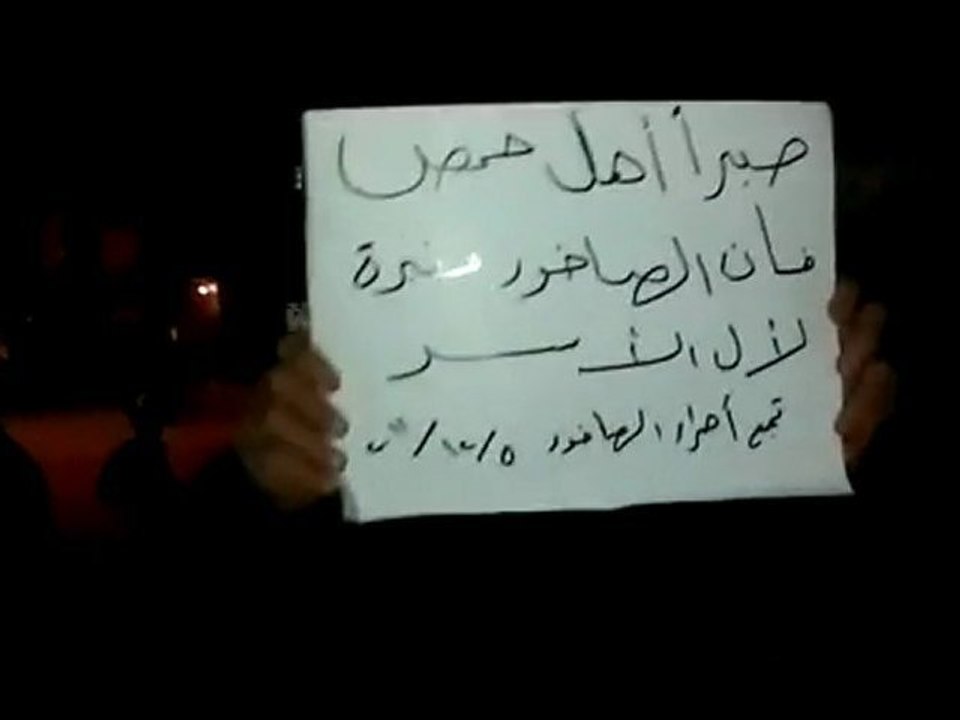 صبراً أهل حمص
فأن الصاخور مقبرة
لأل الأسد
تجمع أحرار الصاخور ٥/١٢/